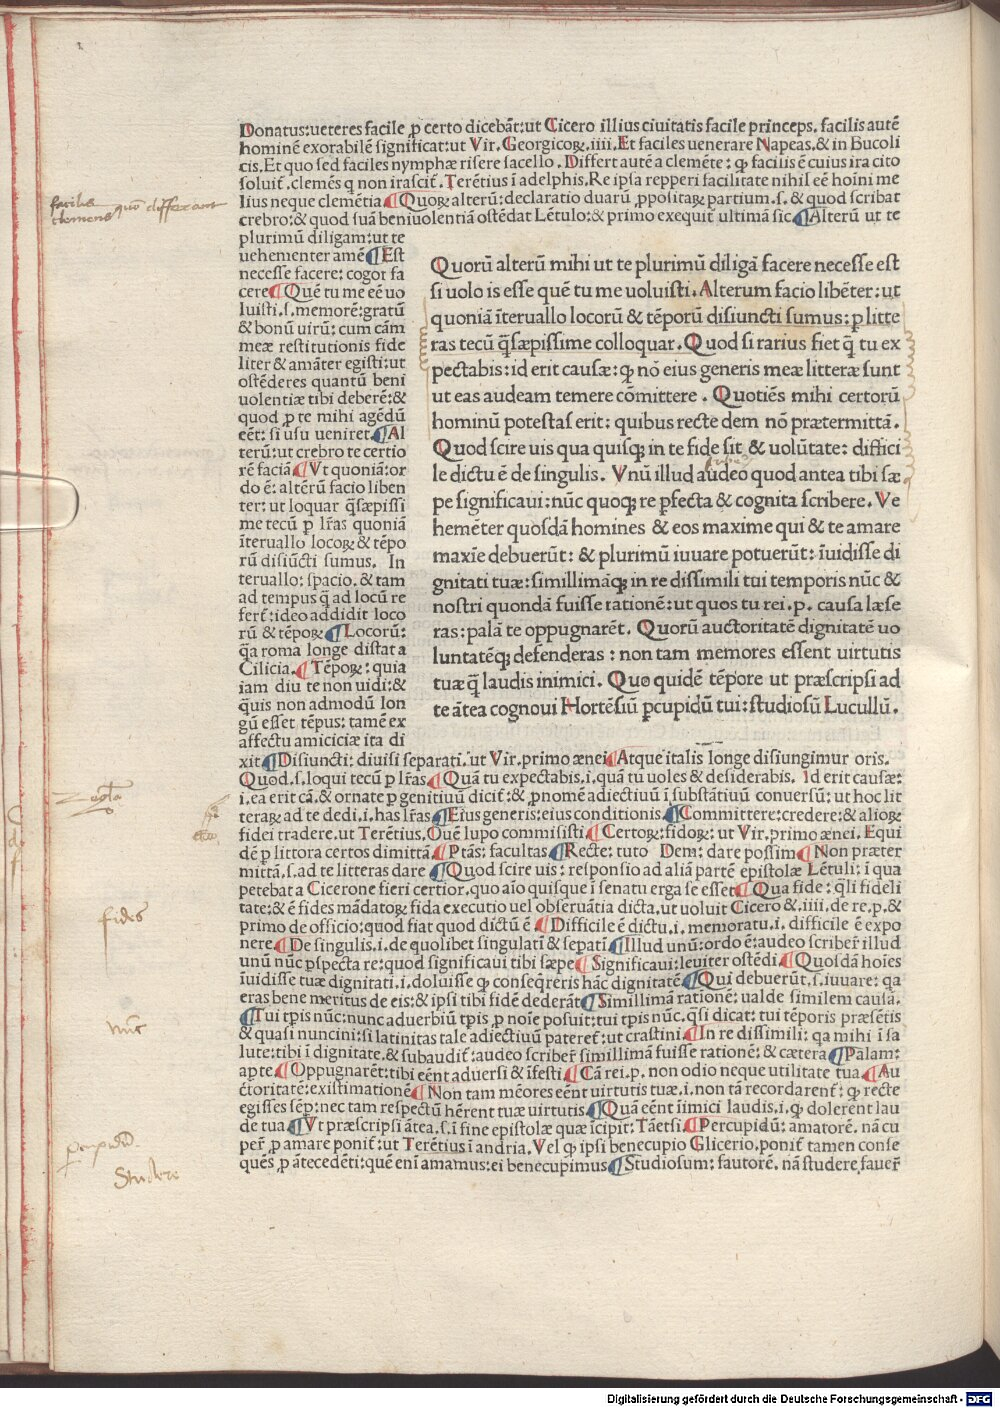 Donatus:ueteres facile ꝓ certo dicebãt:ut Cicero illius ciuitatis facile princeps. facilis autẽ
hominẽ exorabilẽ significat:ut Vir. Georgicoꝝ.iiii. Et faciles uenerare Napeas.& in Bucoli
cis.Et quo sed faciles nymphæ risere sacello. Differt autẽ a clemẽte: ꝙ facilis ẽ cuius ira cito
soluit̃. clemẽs q̃ non irascit̃. Terẽtius ĩ adelphis.Re ipsa repperi facilitate nihil eẽ hoĩni me
lius neque clemẽtia. Quoꝝ alterũ: declaratio duarũ ꝓpositaꝝ partium.s. & quod scribat
crebro: & quod suã beniuolentiã ostẽdat Lẽtulo: & primo exequit̃ ultimã sic. Alterũ ut te
plurimũ diligam:ut te
uehementer amẽ. Est
necesse facere: cogor fa
cere. Quẽ tu me eẽ uo
luisti.s.memorẽ:gratũ
& bonũ uirũ: cum cãm
meæ restitutionis fide
liter & amãter egisti:ut
ostẽderes quantũ beni
uolentiæ tibi deberẽ:&
quod ꝓ te mihi agẽdũ
eẽt: si usu ueniret. Al
terũ:ut crebro te certio
rẽ faciã. Vt quoniã:or
do ẽ: alterũ facio liben
ter: ut loquar q̃sæpissi
me tecũ ꝑ lr̃as quoniã
ĩteruallo locoꝝ & tẽpo
rũ disiũcti sumus. In
teruallo: spacio.& tam
ad tempus q̃ ad locũ re
fert̃: ideo addidit loco
rũ & tẽpoꝝ. Locorũ:
q̃a roma longe distat a
Cilicia. Tẽpoꝝ: quia
iam diu te non uidi:&
q̃uis non admodũ lon
gũ esset tẽpus: tamẽ ex
affectu amiciciæ ita di
Quorũ alterũ mihi ut te plurimũ diligã facere necesse est
si uolo is esse quẽ tu me uoluisti. Alterum facio libẽter: ut
quoniã ĩteruallo locorũ & tẽporũ disiuncti sumus: ꝑ litte
ras tecũ q̃sæpissime colloquar. Quod si rarius fiet q̃ tu ex
pectabis: id erit causæ: ꝙ nõ eius generis meæ litteræ sunt
ut eas audeam temere cõmittere. Quotiẽs mihi certorũ
hominũ potestas erit: quibus recte dem nõ prætermittã.
Quod scire uis qua quisqꝫ in te fide sit & uolũtate: diffici
le dictu ẽ de singulis. Vnũ illud audeo quod antea tibi sæ
pe significaui:nũc quoqꝫ re ꝑfecta & cognita scribere. Ve
hemẽter quosdã homines & eos maxime qui & te amare
maxĩe debuerũt: & plurimũ iuuare potuerũt: ĩuidisse di
gnitati tuæ: simillimãqꝫ in re dissimili tui temporis nũc &
nostri quondã fuisse rationẽ: ut quos tu rei.p. causa læse
ras: palã te oppugnarẽt. Quorũ auctoritatẽ dignitatẽ uo
luntatẽqꝫ defenderas: non tam memores essent uirtutis
tuæ q̃ laudis inimici. Quo quidẽ tẽpore ut præscripsi ad
te ãtea cognoui Hortẽsiũ ꝑcupidũ tui: studiosũ Lucullũ.
xit. Disiuncti: diuisi separati.ut Vir.primo ænei. Atque italis longe disiungimur oris.
Quod.s.loqui tecũ ꝑ lr̃as. Quã tu expectabis.i.quã tu uoles & desiderabis. Id erit causæ:
i.ea erit cã.& ornate ꝑ genitiuũ dicit̃: & ꝓnomẽ adiectiuũ ĩ substãtiuũ conuersũ: ut hoc lit
teraꝝ ad te dedi.i.has lr̃as. Eius generis: eius conditionis. Committere: credere: & alioꝝ
fidei tradere.ut Terẽtius. Ouẽ lupo commisisti. Certoꝝ: fidoꝝ: ut Vir.primo ænei. Equi
dẽ ꝑ littora certos dimittã. Ptãs: facultas. Recte: tuto Dem: dare possim. Non præter
mittã.s.ad te litteras dare. Quod scire uis: responsio ad aliã partẽ epistolæ Lẽtuli: ĩ qua
petebat a Cicerone fieri certior.quo aĩo quisque ĩ senatu erga se esset. Qua fide: q̃li fideli
tate: & ẽ fides mãdatoꝝ fida executio uel obseruãtia dicta.ut uoluit Cicero &.iiii.de re.p.&
primo de officio: quod fiat quod dictũ ẽ. Difficile ẽ dictu.i.memoratu.i. difficile ẽ expo
nere. De singulis.i.de quolibet singulatĩ & sepatĩ. Illud unũ: ordo ẽ: audeo scriber̃ illud
unũ nũc ꝑspecta re: quod significaui tibi sæpe. Significaui: leuiter ostẽdi. Quosdã hoĩes
ĩuidisse tuæ dignitati.i.doluisse ꝙ conseq̃reris hãc dignitatẽ. Qui debuerũt.s.iuuare: q̃a
eras bene meritus de eis: & ipsi tibi fidẽ dederãt. Simillimã rationẽ: ualde similem causã.
Tui tꝑis nũc: nunc aduerbiũ tꝑis ꝓ noĩe posuit: tui tꝑis nũc.q̃si dicat: tui tẽporis præsẽtis
& quasi nuncini: si latinitas tale adiectiuũ pateret̃: ut crastini. In re dissimili: q̃a mihi ĩ sa
lute: tibi ĩ dignitate.& subaudit̃: audeo scriber̃ simillimã fuisse rationẽ: & cætera. Palam:
apte. Oppugnarẽt: tibi eẽnt aduersi & ĩfesti. Cã rei.p. non odio neque utilitate tua. Au
ctoritatẽ: existimationẽ. Non tam mẽores eẽnt uirtutis tuæ.i. non tã recordarent̃: ꝙ recte
egisses sẽꝑ: nec tam respectũ hẽrent tuæ uirtutis. Quã eẽnt ĩimici laudis.i.ꝙ dolerent lau
de tua. Vt præscripsi ãtea.s.ĩ fine epistolæ quæ ĩcipit: Tãetsi. Percupidũ: amatorẽ. nã cu
per̃ ꝓ amare ponit̃: ut Terẽtius ĩ andria. Vel ꝙ ipsi benecupio Glicerio.ponit̃ tamen conse
quẽs ꝓ ãtecedẽti: quẽ enĩ amamus: ei benecupimus. Studiosum: fautorẽ. nã studere fauer̃
facilis
clemens quo differant
fides
nũc
Studere
Digitalisierung gefördert durch die Deutsche Forschungsgemeinschaft - DFG